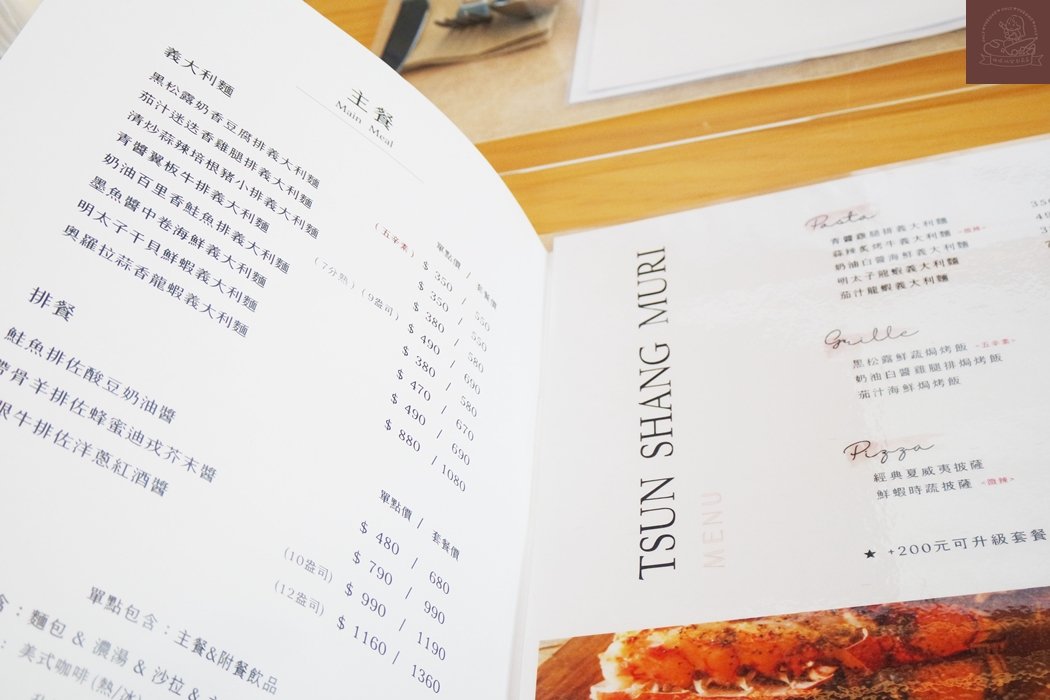 主餐
Main Meal
義大利麵
單點價 / 套餐價
黑松露奶香豆腐排義大利麵 (五辛素) $ 350 / 550
茄汁迷迭香雞腿排義大利麵 $ 350 / 550
清炒蒜辣培根豬小排義大利麵 $ 380 / 580
青醬翼板牛排義大利麵 (7分熟)(9盎司) $ 490 / 690
奶油百里香鮭魚排義大利麵 $ 380 / 580
墨魚醬中卷海鮮義大利麵 $ 470 / 670
明太子干貝鮮蝦義大利麵 $ 490 / 690
奧羅拉蒜香龍蝦義大利麵 $ 880 / 1080
排餐
單點價 / 套餐價
鮭魚排佐酸豆奶油醬 $ 480 / 680
帶骨羊排佐蜂蜜迪戎芥末醬 $ 790 / 990
眼牛排佐洋蔥紅酒醬 (10盎司) $ 990 / 1190
(12盎司) $ 1160 / 1360
單點包含：主餐&附餐飲品
含：麵包 & 濃湯 & 沙拉 &
：美式咖啡(熱/冰)
TSUN SHANG MURI
MENU
Pasta
青醬雞腿排義大利麵 350
蒜辣炙烤牛義大利麵 <微辣>
奶油白醬海鮮義大利麵
明太子龍蝦義大利麵
茄汁龍蝦義大利麵
Grille
黑松露鮮蔬焗烤飯 <五辛素>
奶油白醬雞腿排焗烤飯
茄汁海鮮焗烤飯
Pizza
經典夏威夷披薩
鮮蝦時蔬披薩 <微辣>
★ +200元可升級套餐